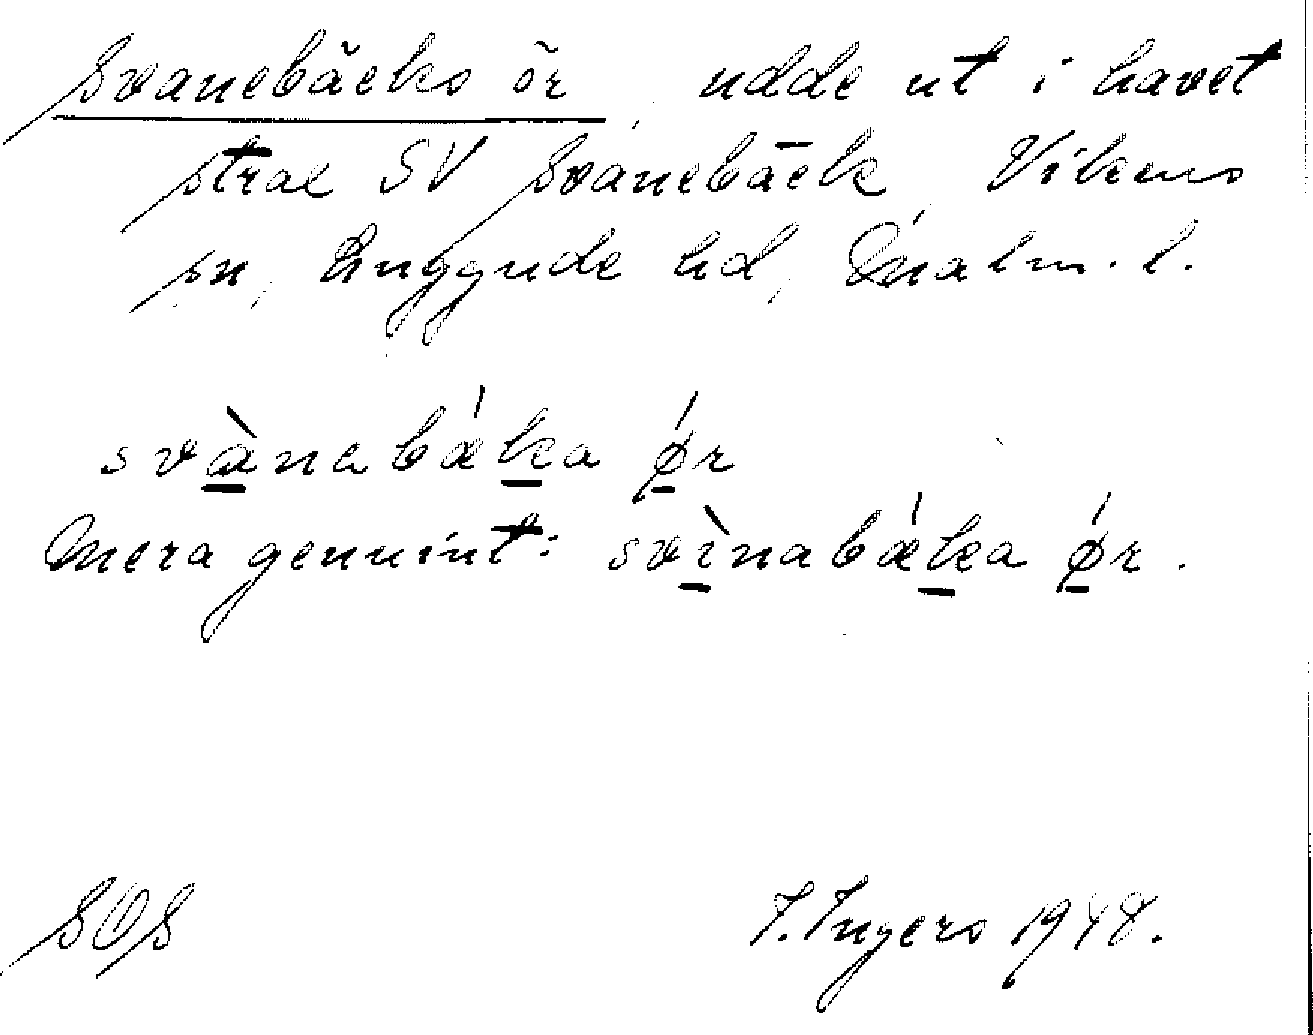 Svanebäcks ör, udde ut i havet
strax SV Svanebäck, Vikens
sn, Luggude hd, Malm. l.
svànabǽka ǿr
Mera genuint: svìnabǽka ǿr.
SOS
I. Ingers 1948.